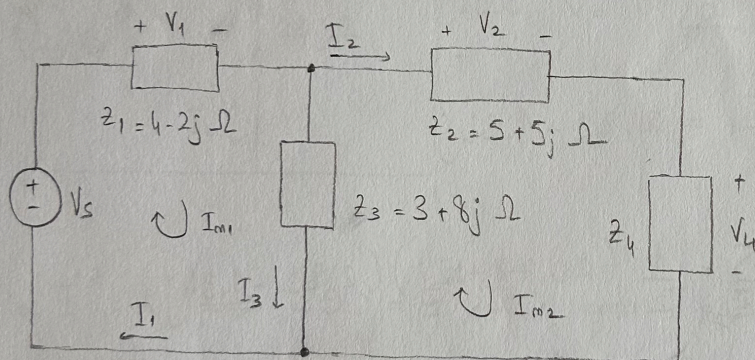 + V₁ -
I₂
+ V₂ -
Z₁ = 4-2j Ω
Z₂ = 5+5j Ω
+
-
Vs
Im₁
Z₃ = 3+8j Ω
Z₄
+
V₄
-
I₃
Im₂
I₁